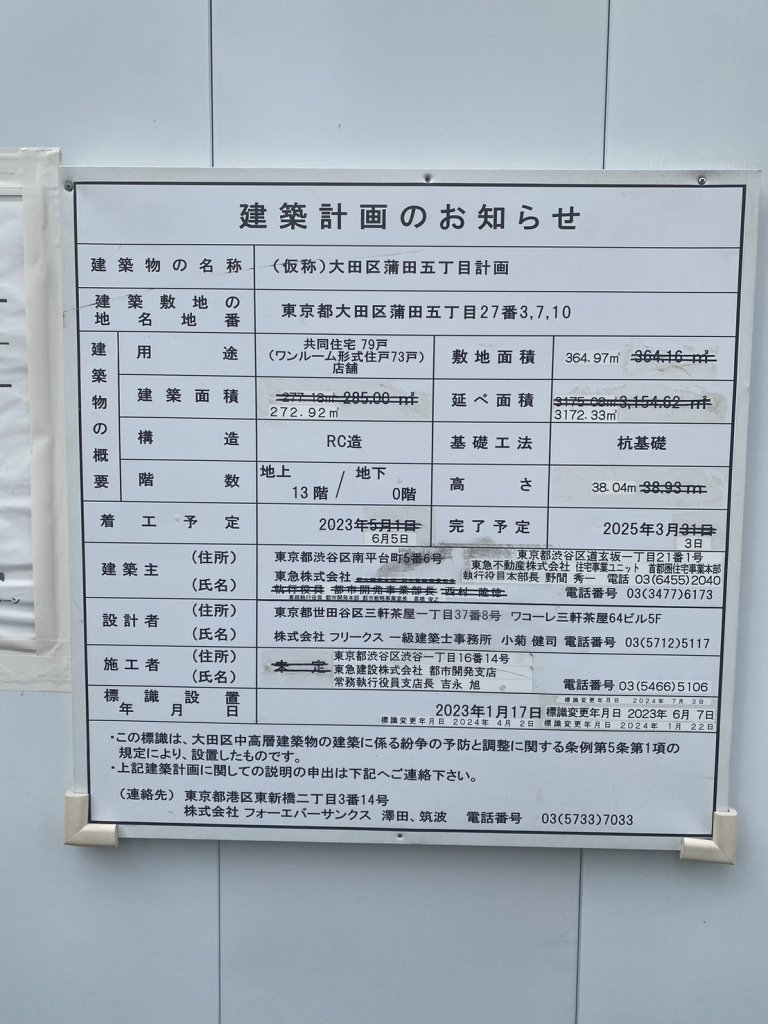 建築計画のお知らせ
建築物の名称 (仮称)大田区蒲田五丁目計画
建築敷地の地名地番 東京都大田区蒲田五丁目27番3,7,10
建築物の概要
用途 共同住宅 79戸
(ワンルーム形式住戸73戸)
店舗
敷地面積 364.97㎡ 364.16㎡
建築面積 277.18㎡ 285.00㎡
272.92㎡
延べ面積 3175.06㎡ 3,154.62㎡
3172.33㎡
構造 RC造 基礎工法 杭基礎
階数 地上 13階 / 地下 0階 高さ 38.04m 38.93m
着工予定 2023年5月1日
6月5日
完了予定 2025年3月31日
3日
建築主 (住所) 東京都渋谷区南平台町5番6号 東京都渋谷区道玄坂一丁目21番1号
(氏名) 東急株式会社
東急不動産株式会社 住宅事業ユニット 首都圏住宅事業本部
執行役員本部長 野間 秀一 電話 03(6455)2040
執行役員 都市開発事業部長 西村
電話番号 03(3477)6173
設計者 (住所) 東京都世田谷区三軒茶屋一丁目37番8号 ワコーレ三軒茶屋64ビル5F
(氏名) 株式会社 フリークス 一級建築士事務所 小菊 健司 電話番号 03(5712)5117
施工者 (住所) (氏名) 未定
東京都渋谷区渋谷一丁目16番14号
東急建設株式会社 都市開発支店
常務執行役員支店長 吉永 旭 電話番号 03(5466)5106
標識設置年月日 標識変更年月日 2024年 7月 3日
2023年1月17日 標識変更年月日 2023年 6月 7日
標識変更年月日 2024年 4月 2日 標識変更年月日 2024年 1月 22日
・この標識は、大田区中高層建築物の建築に係る紛争の予防と調整に関する条例第5条第1項の
規定により、設置したものです。
・上記建築計画に関しての説明の申出は下記へご連絡下さい。
(連絡先) 東京都港区東新橋二丁目3番14号
株式会社 フォーエバーサンクス 澤田、筑波 電話番号 03(5733)7033